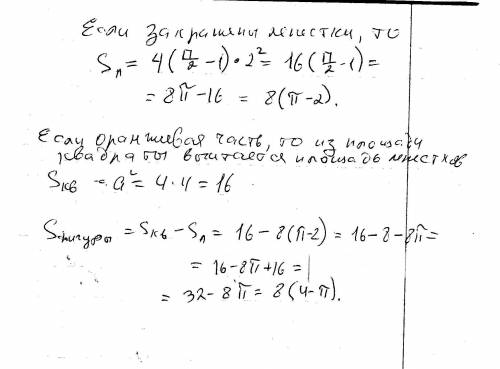 Если закрашены лепестки, то
Sл = 4(π/2 - 1)·2² = 16(π/2 - 1) =
= 8π - 16 = 8(π - 2).
Если оранжевая часть, то из площади
квадраты вычитается площадь лепестков
Sкв = a² = 4·4 = 16
Sфигуры = Sкв - Sл = 16 - 8(π-2) = 16 - 8 - 8π =
= 16 - 8π + 16 =
= 32 - 8π = 8(4 - π).